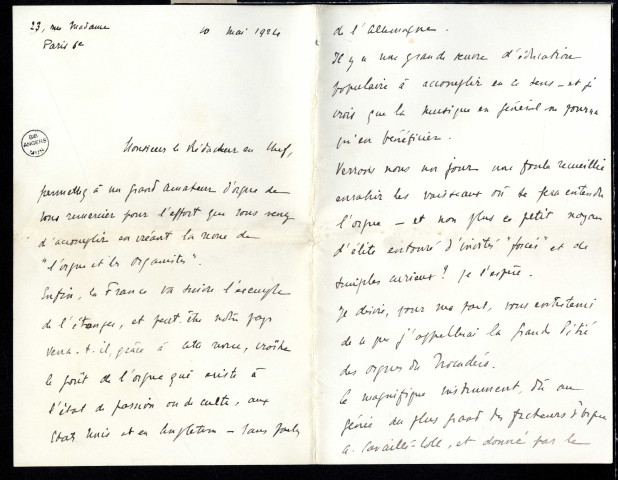 23, rue Madame
Paris 6e
10 mai 1924
BIB
ANGERS
MUN
Monsieur le Rédacteur en Chef,
permettez à un grand amateur d'orgue de
vous remercier pour l'effort que vous venez
d'accomplir en créant la revue de
"l'orgue et les organistes".
Enfin, la France va suivre l'exemple
de l'étranger, et peut-être notre pays
verra-t-il, grâce à cette revue, croître
le goût de l'orgue qui existe à
l'état de passion ou de culte, aux
Etats Unis et en Angleterre – sans parler
de l'Allemagne.
Il y a une grande œuvre d'éducation
populaire à accomplir en ce sens – et je
crois que la musique en général ne pourra
qu'en bénéficier.
Verrons nous un jour une foule recueillie
envahir les vaisseaux où se fera entendre
l'orgue – et non plus ce petit noyau
d'élite entouré d'invités "forcés" et de
simples curieux ? Je l'espère.
Je désire, pour ma part, vous entretenir
de ce que j'appellerai la Grande Pitié
des orgues du Trocadéro.
Le magnifique instrument, dû au
génie du plus grand des facteurs d'orgue
A. Cavaillé-Coll, et donné par le